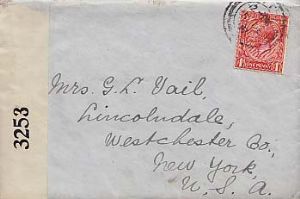 3253
Mrs. G. L. Vail,
Lincolndale,
Westchester Co.,
New York,
U. S. A.